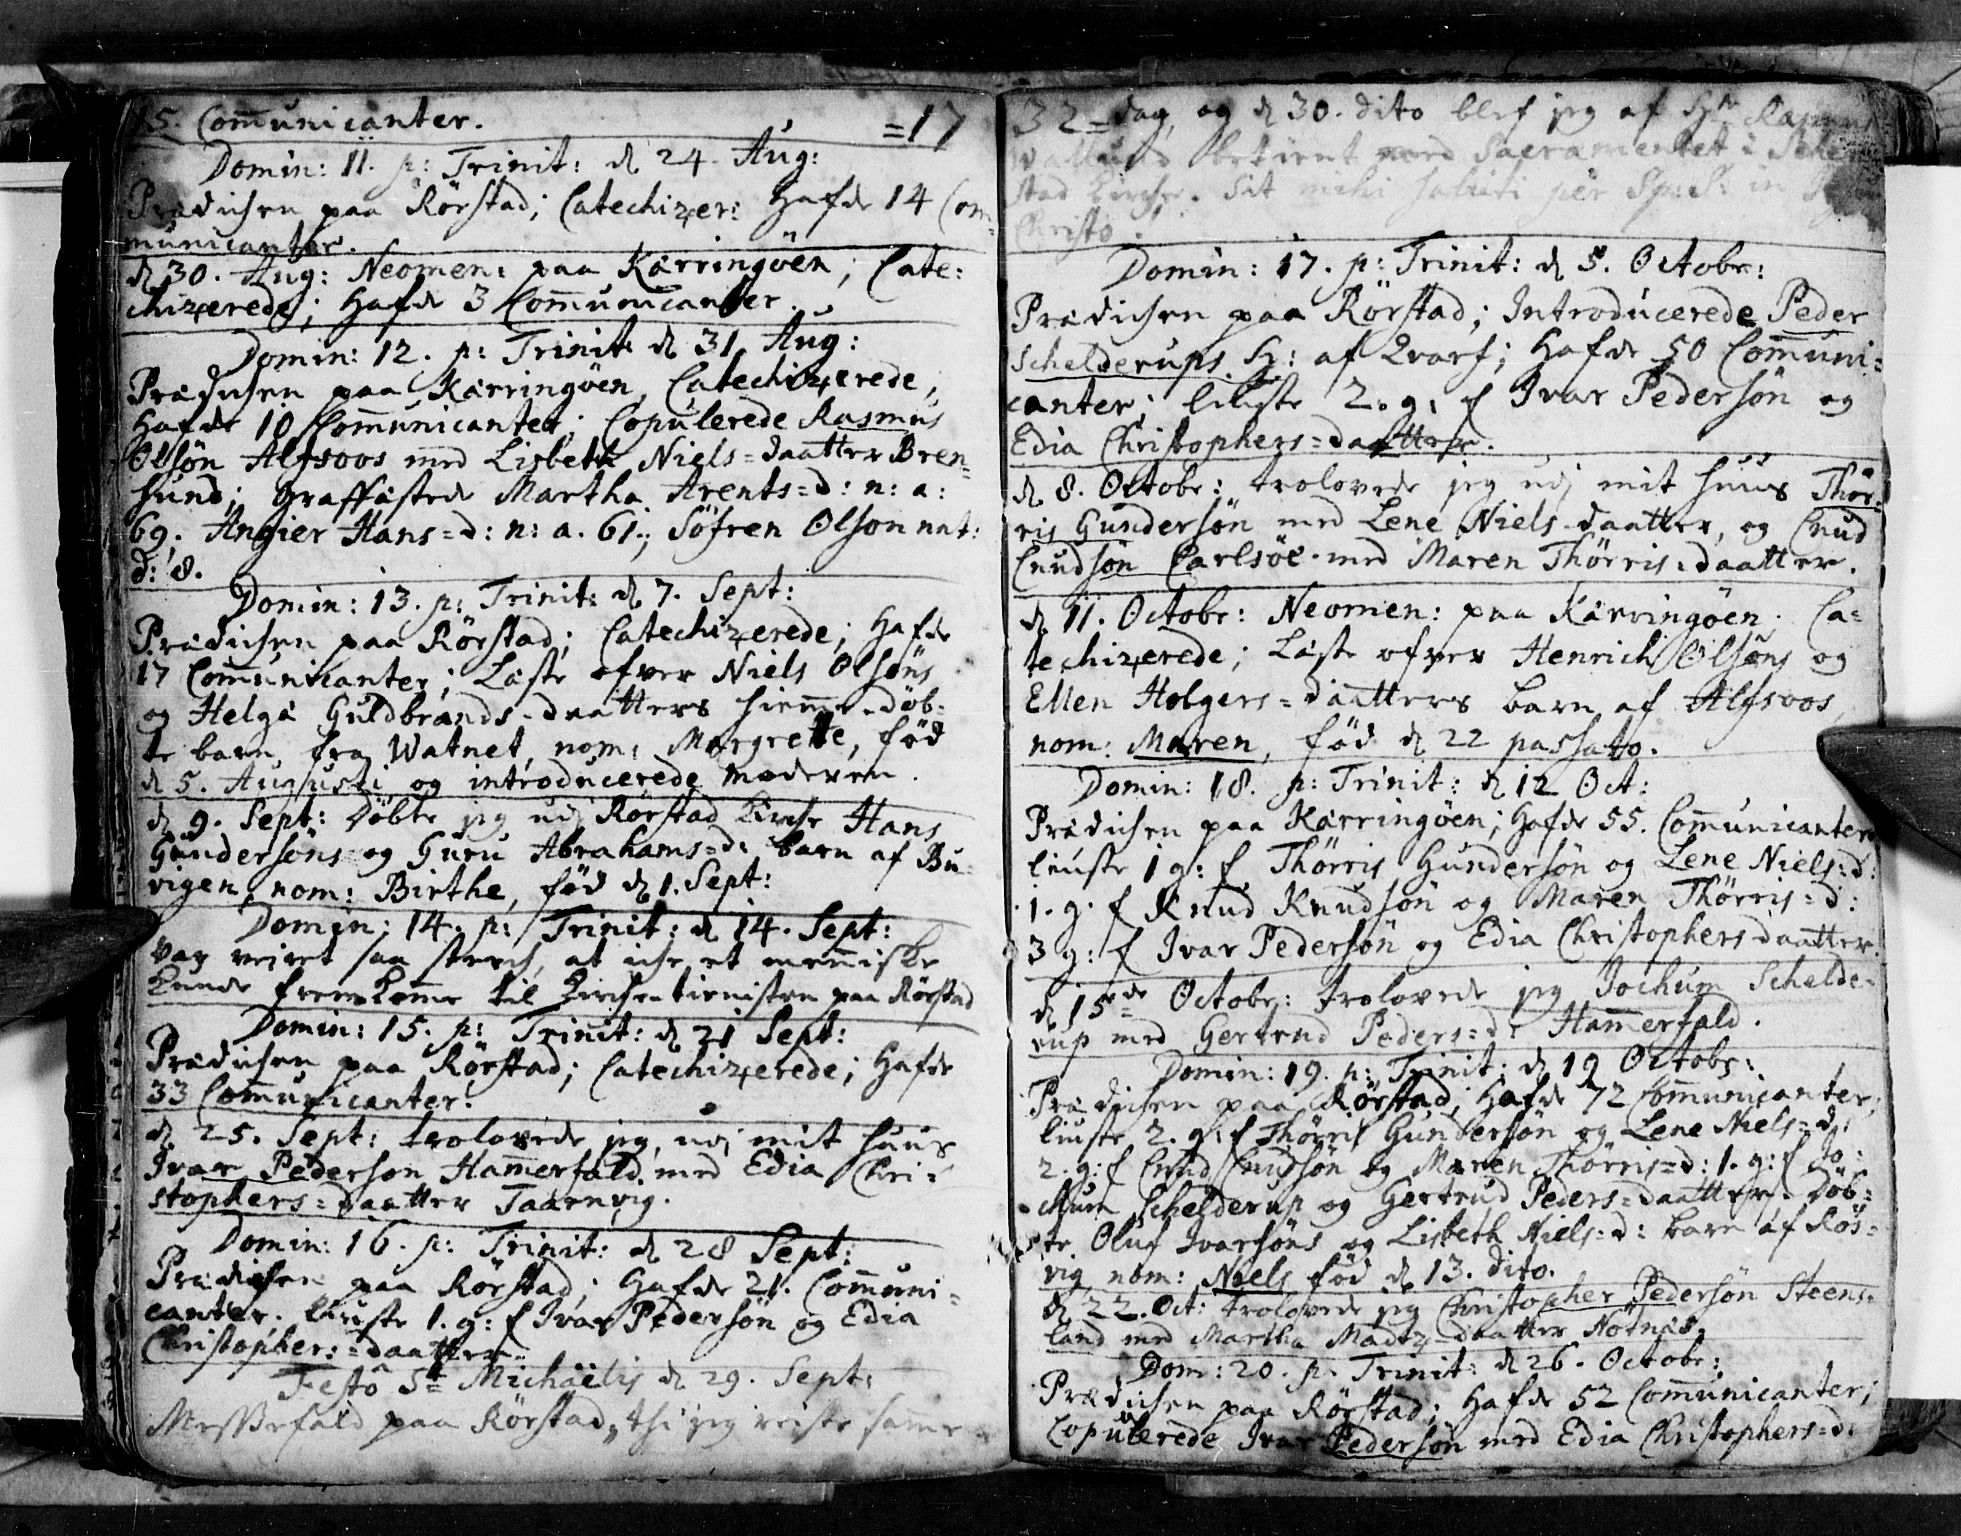 15. Com̄unicanter. =17
Domin: 11. p: Trinit: d 24. Aug:
Prædichen paa Rörstad; Catechizer: Hafde 14 Com̄-
municanter.
d 30. Aug: Neomen: paa Kærringöen; Cate:
chizerede; Hafde 3 Com̄unicanter.
Domin: 12. p: Trinit: d 31. Aug:
Prædichen paa Kærringöen, Catechizerede,
Hafde 10 Com̄unicanter; Copulerede Rasmus
Olsön Alfsoos med Lisbeth Niels=daatter Bren=
sund; Graffæstede Martha Arents=d: n: a:
69. Angier Hans=d: n: a. 61.; Söfren Olson nat:
d: 8.
Domin: 13. p: Trinit: d 7. Sept:
Prædichen paa Rörstad; Catechizerede; Hafde
17 Com̄unicanter; Læste ofver Niels Olsöns
og Helga Guldbrands-daatters hiem̄e-döb-
te barn fra Watnet, nom: Margrette, föd
d 5. Augusti, og introducerede moderen.
d 9. Sept: Döbte jeg udj Rörstad Kirche Hans
Gundersöns og Guru Abrahams=d: barn af Bu-
vigen, nom: Birthe, föd d 1. Sept:
Domin: 14. p: Trinit: d 14. Sept:
var veiret saa sterch, at iche et men̄iske
kunde fremkom̄e til Kirche-tienisten paa Rörstad
Domin: 15. p: Trinit: d 21 Sept:
Prædichen paa Rörstad; Catechizerede; Hafde
33 Com̄unicanter.
d 25. Sept: trolovede jeg udj mit huus
Ivar Pederson Ham̄erfald med Edia Chri=
stophers=daatter Taarnvig.
Domin: 16. p: Trinit: d 28 Sept:
Prædichen paa Rörstad; Hafde 21. Com̄uni=
canter. liuste 1. g: f Ivar Pedersön og Edia
Christophers=daatter.
Festô Stl Michaëlis d 29. Sept:
Messefald paa Rörstad, thi jeg reiste sam̄e-
32=dag, og d 30. dito blef jeg af Hr Rasmus
Wallund betient med Sacramentet i Schier
stad Kirche. Sit mihi saluti per Sp: S: in
Christo.
Domin: 17. p: Trinit: d 5. Octobr:
Prædichen paa Rörstad; Introducerede Peder
Schelderups H: af Qvarf; Hafde 50 Com̄uni=
canter; liuste 2. g. f Ivar Pedersön og
Edia Christophers=daatter.
d 8. Octobr: trolovede jeg udj mit huus Thör-
ris Gundersön med Lene Niels-daatter, og Cnud
Cnudsön Carlsöe med Maren Thörris-daatter.
d 11. Octobr: Neomen: paa Kærringöen. Ca=
techizerede; Læste ofver Henrich Olsöns og
Ellen Holgers=daatters barn af Alfsoos,
nom: Maren, föd d 22 passato.
Domin: 18. p: Trinit: d 12 Oct:
Prædichen paa Kærringöen; Hafde 55. Com̄unicanter
liuste 1 g: f Thörris Gundersön og Lene Niels=d:
1. g. f Knud Knudsön og Maren Thörris=d:
3 g: f Ivar Pedersön og Edia Christophers daatter.
d 15de Octobr: trolovede jeg Jochum Schelde-
rup med Gertrud Peders=d: Ham̄erfald.
Domin: 19. p: Trinit: d 19 Octobr:
Prædichen paa Rörstad; Hafde 72 Com̄unicanter;
liuste 2. g: f Thörris Gundersön og Lene Niels=d:
2. g: f Cnud Cnudsön og Maren Thörris=d: 1. g: f Jo:
chum Schelderup og Gertrud Peders=daatter. Döb=
te Oluf Ivarsöns og Lisbeth Niels=d: barn af Rös=
vig nom: Niels föd d 13. dito.
d 22. Oct: trolovede jeg Christopher Pedersön Steens-
land med Martha Madtz-daatter Nötnæs.
Dom: 20. p. Trinit: d 26. Octobr:
Prædichen paa Rörstad; Hafde 52 Com̄unicanter;
Copulerede Ivar Pedersön med Edia Christophers=d: